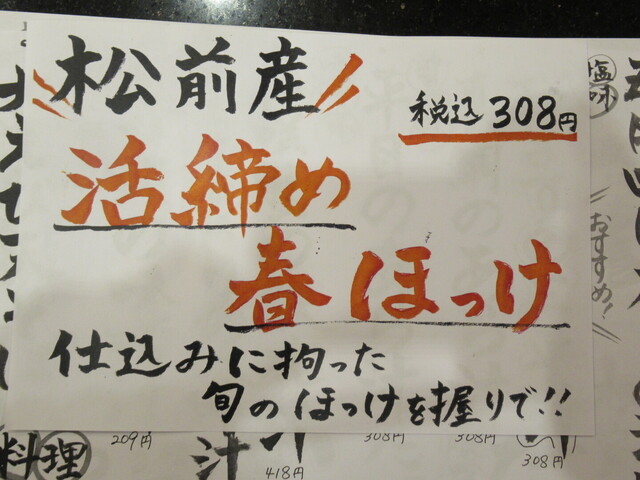 松前産
税込308円
活締め
春ほっけ
仕込みに拘った
旬のほっけを握りで!!
塩味
おすすめ!
料理
209円
汁
418円
308円
308円
308円